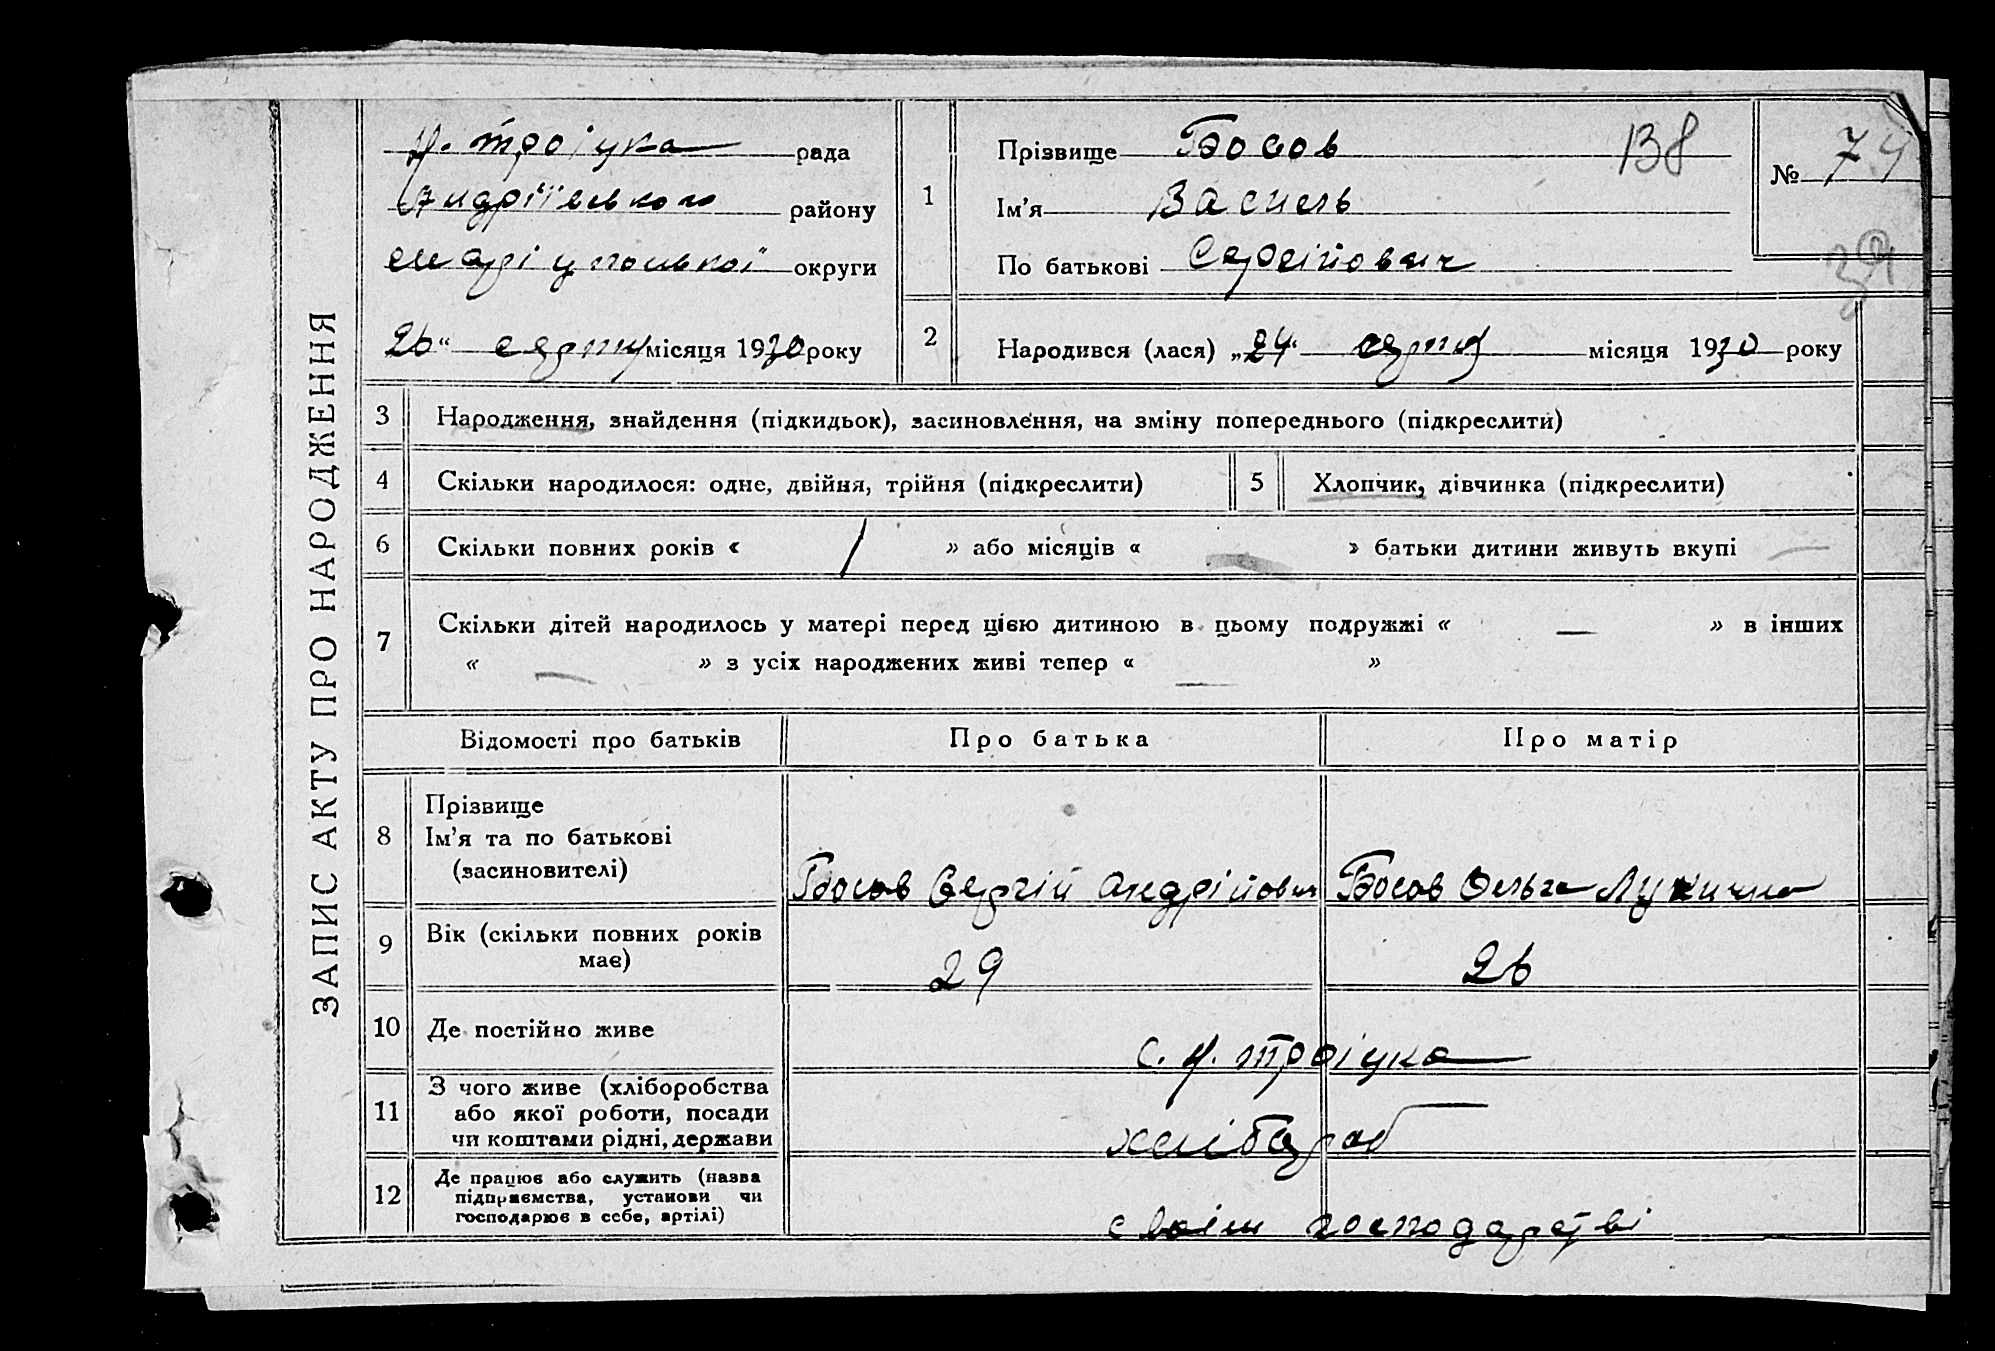 ЗАПИС АКТУ ПРО НАРОДЖЕННЯ
Н. Троіцка рада
Андріївського району
Маріупольської округи
26 “ серпня місяця 1930 року
1
Прізвище Босов 138
Ім’я Василь
По батькові Сергійович
№ 74
2
Народився (лася) „ 24 “ серпня місяця 1930 року
3 Народження, знайдення (підкидьок), засиновлення, на зміну попереднього (підкреслити)
4 Скільки народилося: одне, двійня, трійня (підкреслити) 5 Хлопчик, дівчинка (підкреслити)
6 Скільки повних років « / » або місяців « — » батьки дитини живуть вкупі —
7 Скільки дітей народилось у матері перед цією дитиною в цьому подружжі « — » в інших
« — » з усіх народжених живі тепер « — »
Відомості про батьків Про батька Про матір
8 Прізвище
Ім’я та по батькові
(засиновителі)
Босов Сергій Андрійович Босов Ольга Лукична
9 Вік (скільки повних років
має)
29 26
10 Де постійно живе с. Н. Троіцка
11 З чого живе (хліборобства
або якої роботи, посади
чи коштами рідні, держави
хлібороб
12 Де працює або служить (назва
підприємства, установи чи
господарює в себе, артілі)
своім господарстві